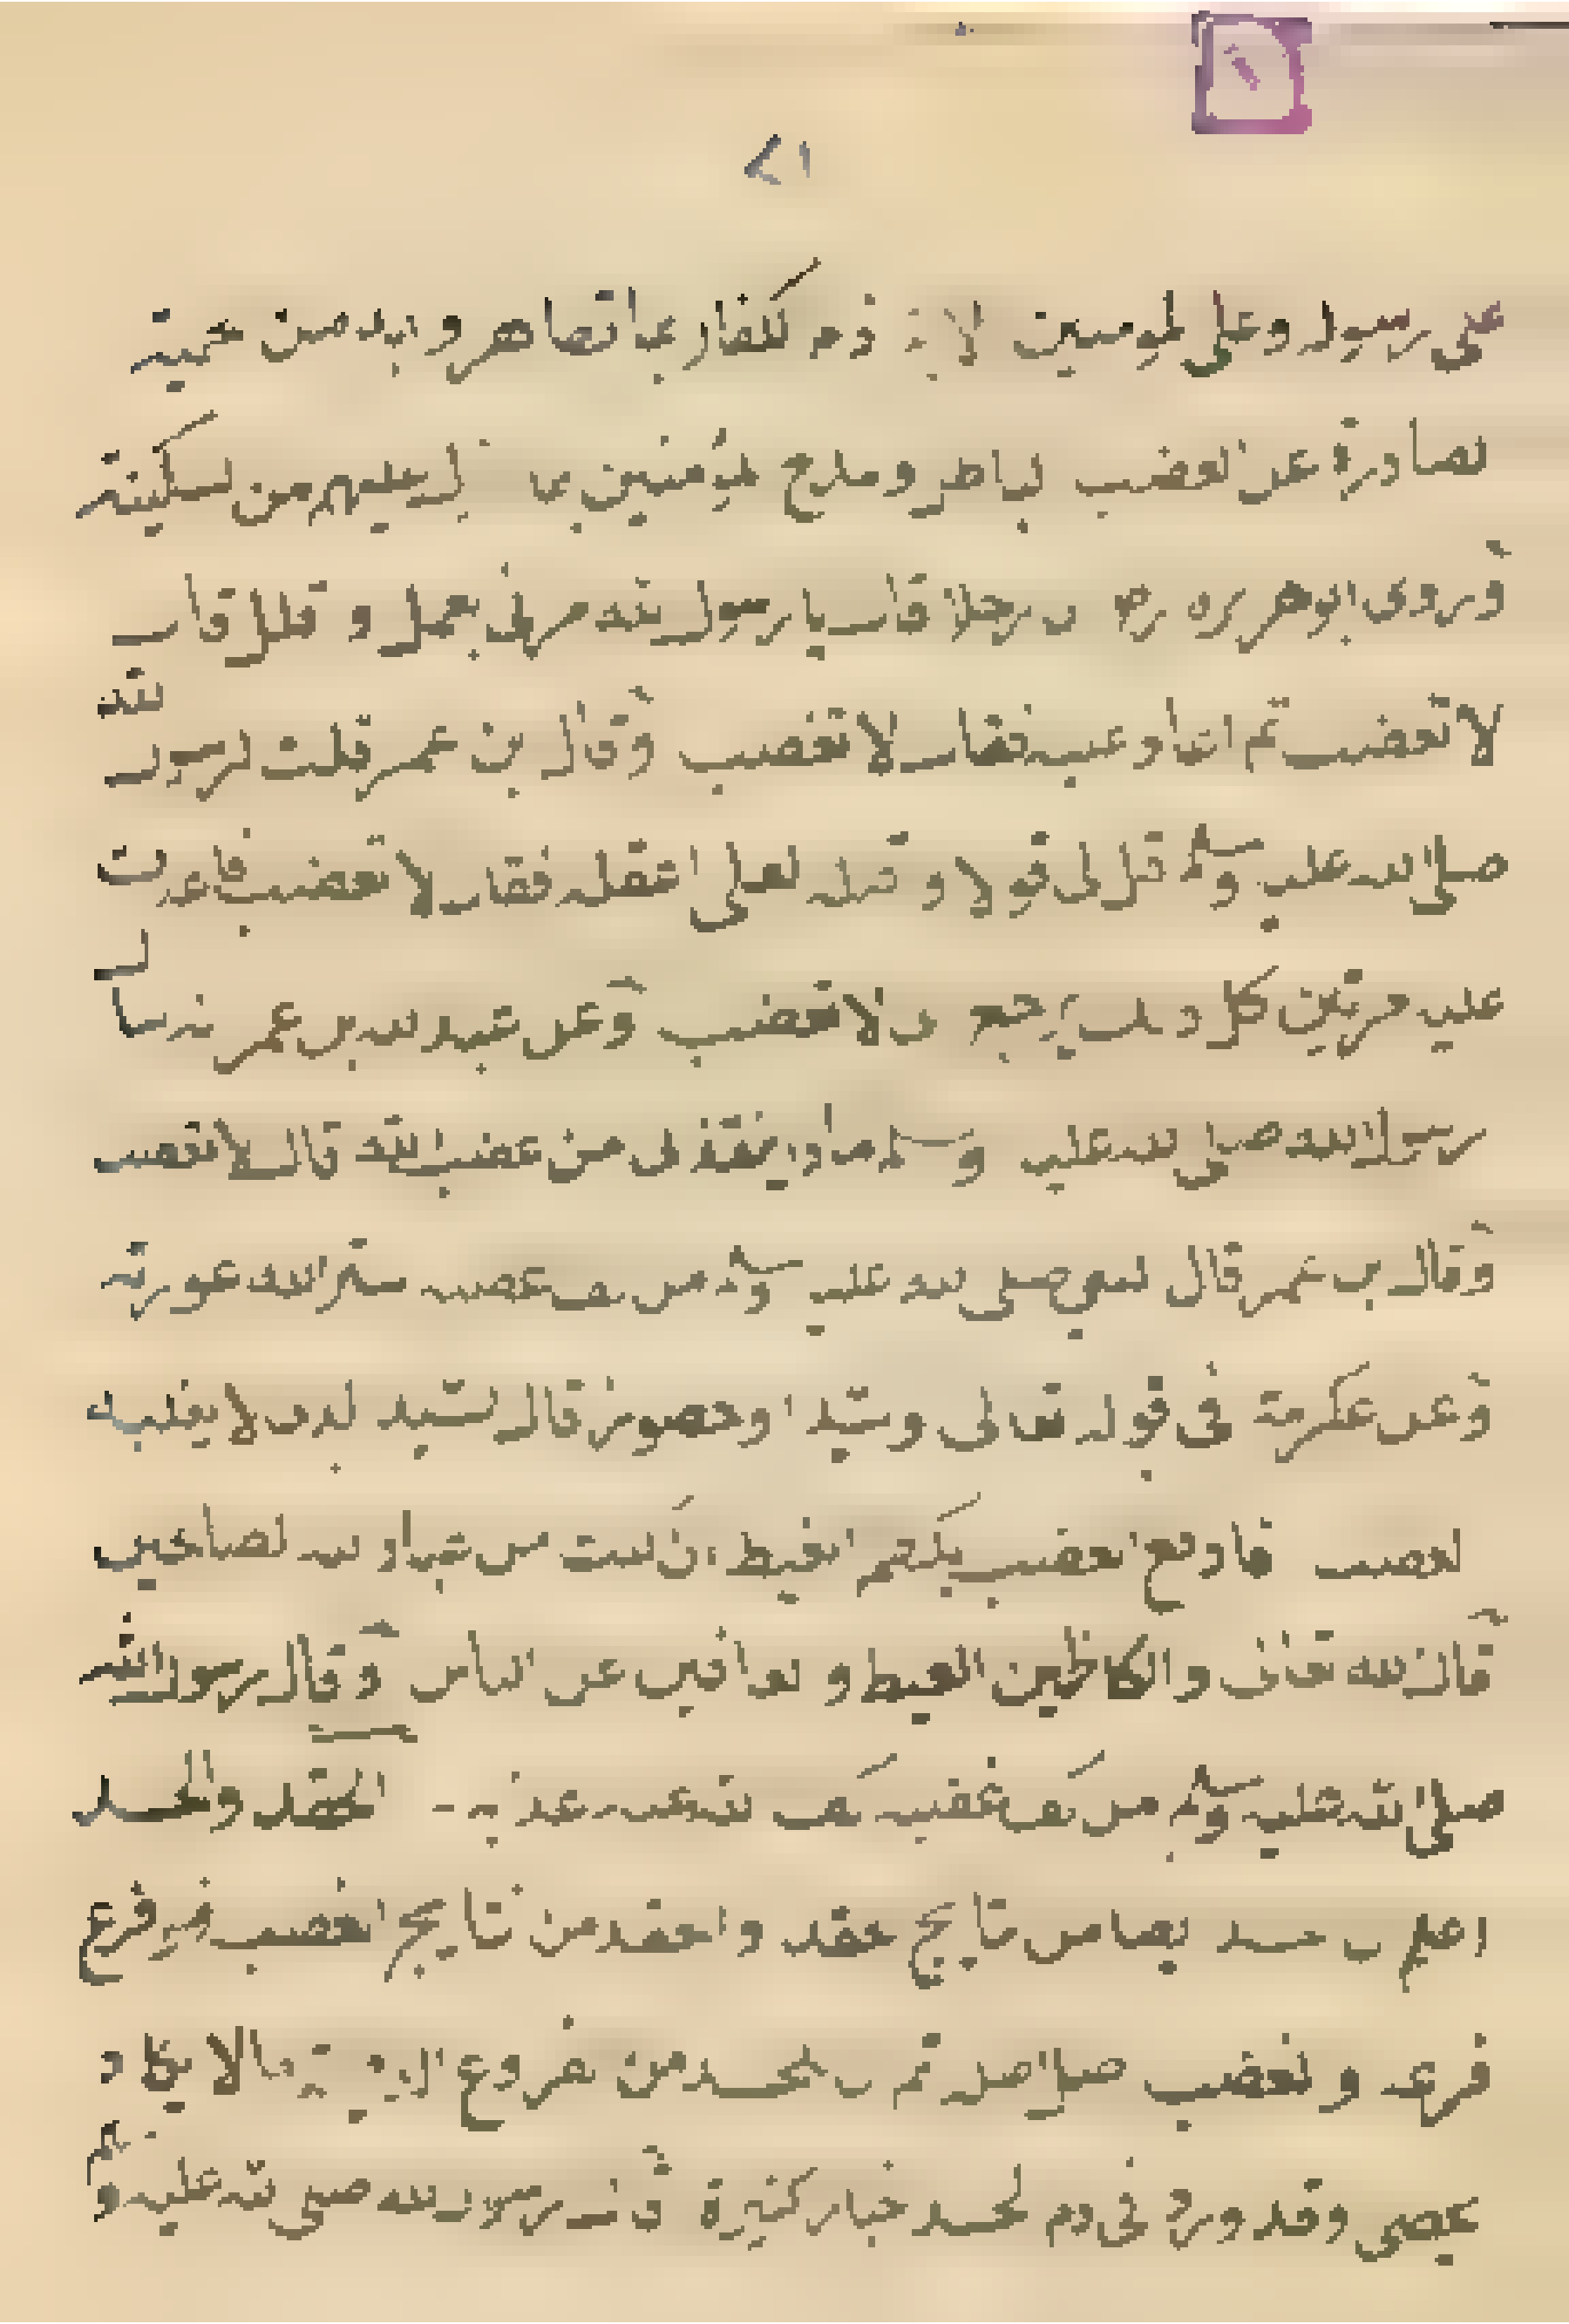 ٢١
على رسوله وعلى المومنين الاية ذم الكفار بما تظاهروا به من الحمية
الصادرة عن الغضب بالباطل ومدح المؤمنين بما انزل عليهم من السكينة
وروى ابو هريرة رضي ان رجلا قال يا رسول الله مرني بعمل واقلل قال
لا تغضب ثم اعاد عليه فقال لا تغضب وقال ابن عمر قلت لرسول الله
صلى الله عليه وسلم قل لي قولا واقلله لعلى اعقله فقال لا تغضب فاعدت
عليه مرتين كل ذلك يرجع الى لا تغضب وعن عبد الله بن عمر انه سال
رسول الله صلى الله عليه وسلم ماذا ينقذني من غضب الله قال لا تغضب
وقال ابن عمر قال النبي صلى الله عليه وسلم من كف غضبه ستر الله عورته
وعن عكرمة في قوله تعالى وسيدا وحصورا قال السيد الذي لا يغلبه
الغضب الغضب يكظم الغيظ ان كنت من عباد الله الصالحين
قال الله تعالى والكاظمين الغيظ والعافين عن الناس وقال رسول الله
صلى الله عليه وسلم من كف غضبه كف الله عنه عذابه الحقد والحسد
اعلم ان الحسد ايضا من نتايج الحقد والحقد من نتايج الغضب فهو فرع
فرعه والغضب اصل اصله ثم ان للحسد من الفروع الذميمة ما لا يكاد
يحصى وقد ورد في ذم الحسد اخبار كثيرة قال رسول الله صلى الله عليه وسلم